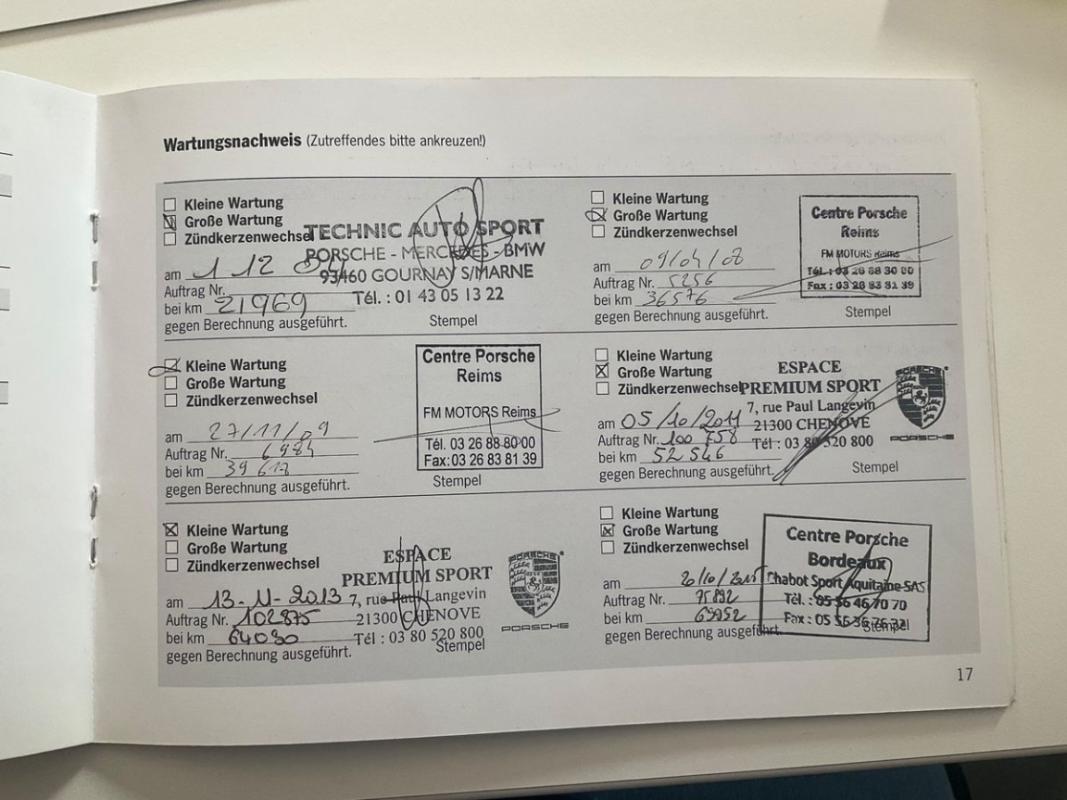 Wartungsnachweis (Zutreffendes bitte ankreuzen!)
Kleine Wartung
Große Wartung
Zündkerzenwechsel
TECHNIC AUTO SPORT
PORSCHE - MERCEDES - BMW
93460 GOURNAY S/MARNE
Tél. : 01 43 05 13 22
am 1 12
Auftrag Nr.
bei km 21969
gegen Berechnung ausgeführt.
Stempel
Kleine Wartung
Große Wartung
Zündkerzenwechsel
Centre Porsche
Reims
FM MOTORS Reims
Tél. : 03 26 88 80 00
Fax : 03 26 83 81 39
am 09/04/08
Auftrag Nr. 5256
bei km 36576
gegen Berechnung ausgeführt.
Stempel
Kleine Wartung
Große Wartung
Zündkerzenwechsel
Centre Porsche
Reims
FM MOTORS Reims
Tél. 03 26 88 80 00
Fax: 03 26 83 81 39
am 27/11/09
Auftrag Nr. 6984
bei km 39617
gegen Berechnung ausgeführt.
Stempel
Kleine Wartung
Große Wartung
Zündkerzenwechsel
ESPACE
PREMIUM SPORT
7, rue Paul Langevin
21300 CHENOVE
Tél : 03 80 520 800
PORSCHE
am 05/10/2011
Auftrag Nr. 100 758
bei km 52546
gegen Berechnung ausgeführt.
Stempel
Kleine Wartung
Große Wartung
Zündkerzenwechsel
ESPACE
PREMIUM SPORT
7, rue Paul Langevin
21300 CHENOVE
Tél : 03 80 520 800
PORSCHE
PORSCHE
am 13-11-2013
Auftrag Nr. 102875
bei km 64030
gegen Berechnung ausgeführt.
Stempel
Kleine Wartung
Große Wartung
Zündkerzenwechsel
Centre Porsche
Bordeaux
Chabot Sport Aquitaine SAS
Tél. : 05 56 46 70 70
Fax : 05 56 36 76 32
am 20/10/2015
Auftrag Nr. 75892
bei km 69952
gegen Berechnung ausgeführt.
Stempel
17